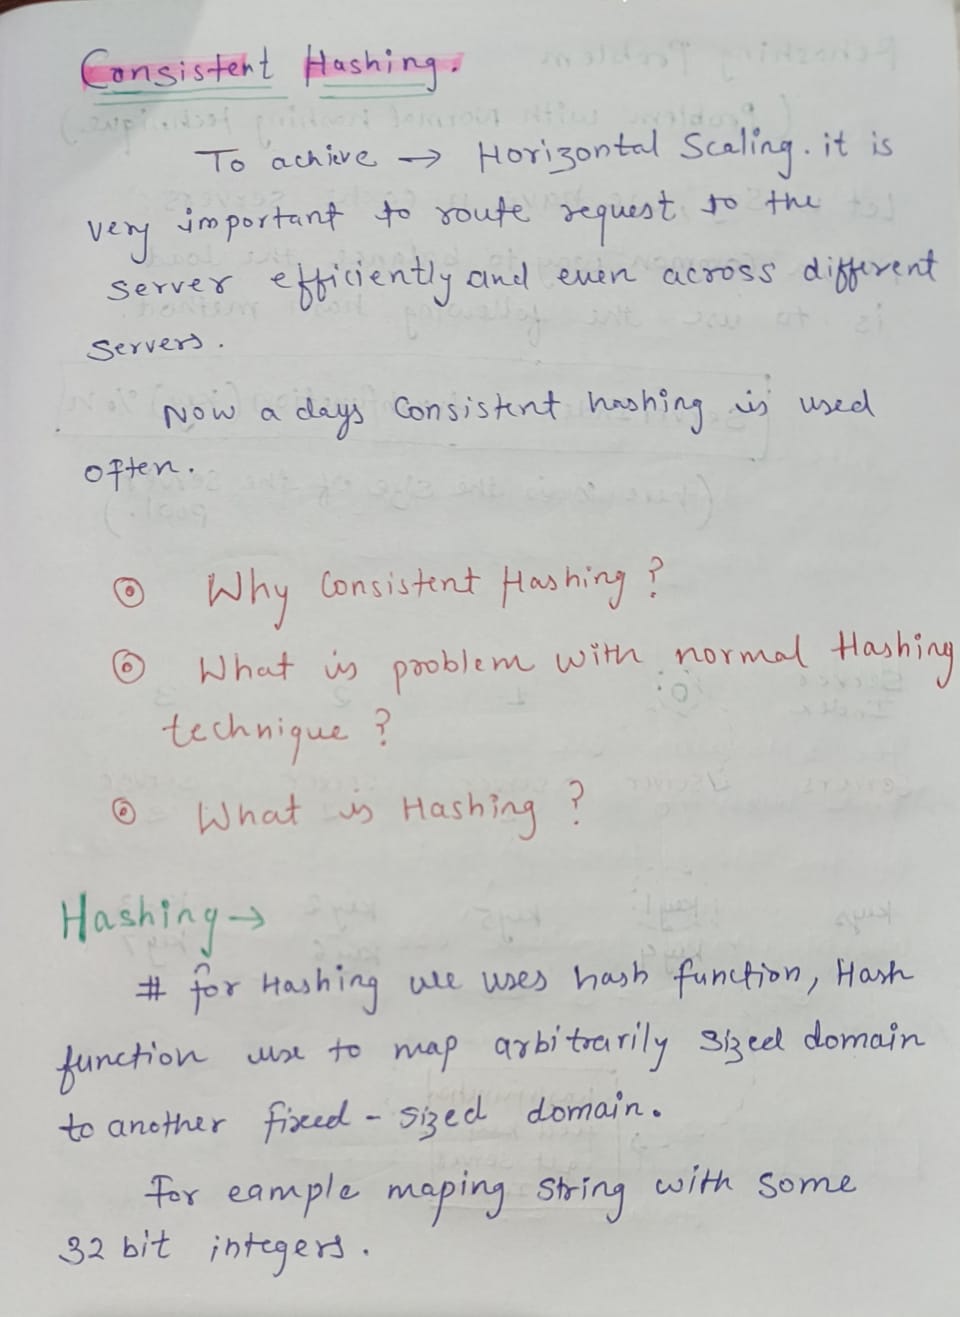 Consistent Hashing.
To achieve → Horizontal Scaling. it is
very important to route request to the
server efficiently and even across different
servers.
Now a days Consistent hashing is used
often.
Why Consistent Hashing ?
What is problem with normal Hashing
technique ?
What is Hashing ?
Hashing →
# for Hashing we uses hash function, Hash
function use to map arbitrarily sized domain
to another fixed - sized domain.
For eample maping string with some
32 bit integers.